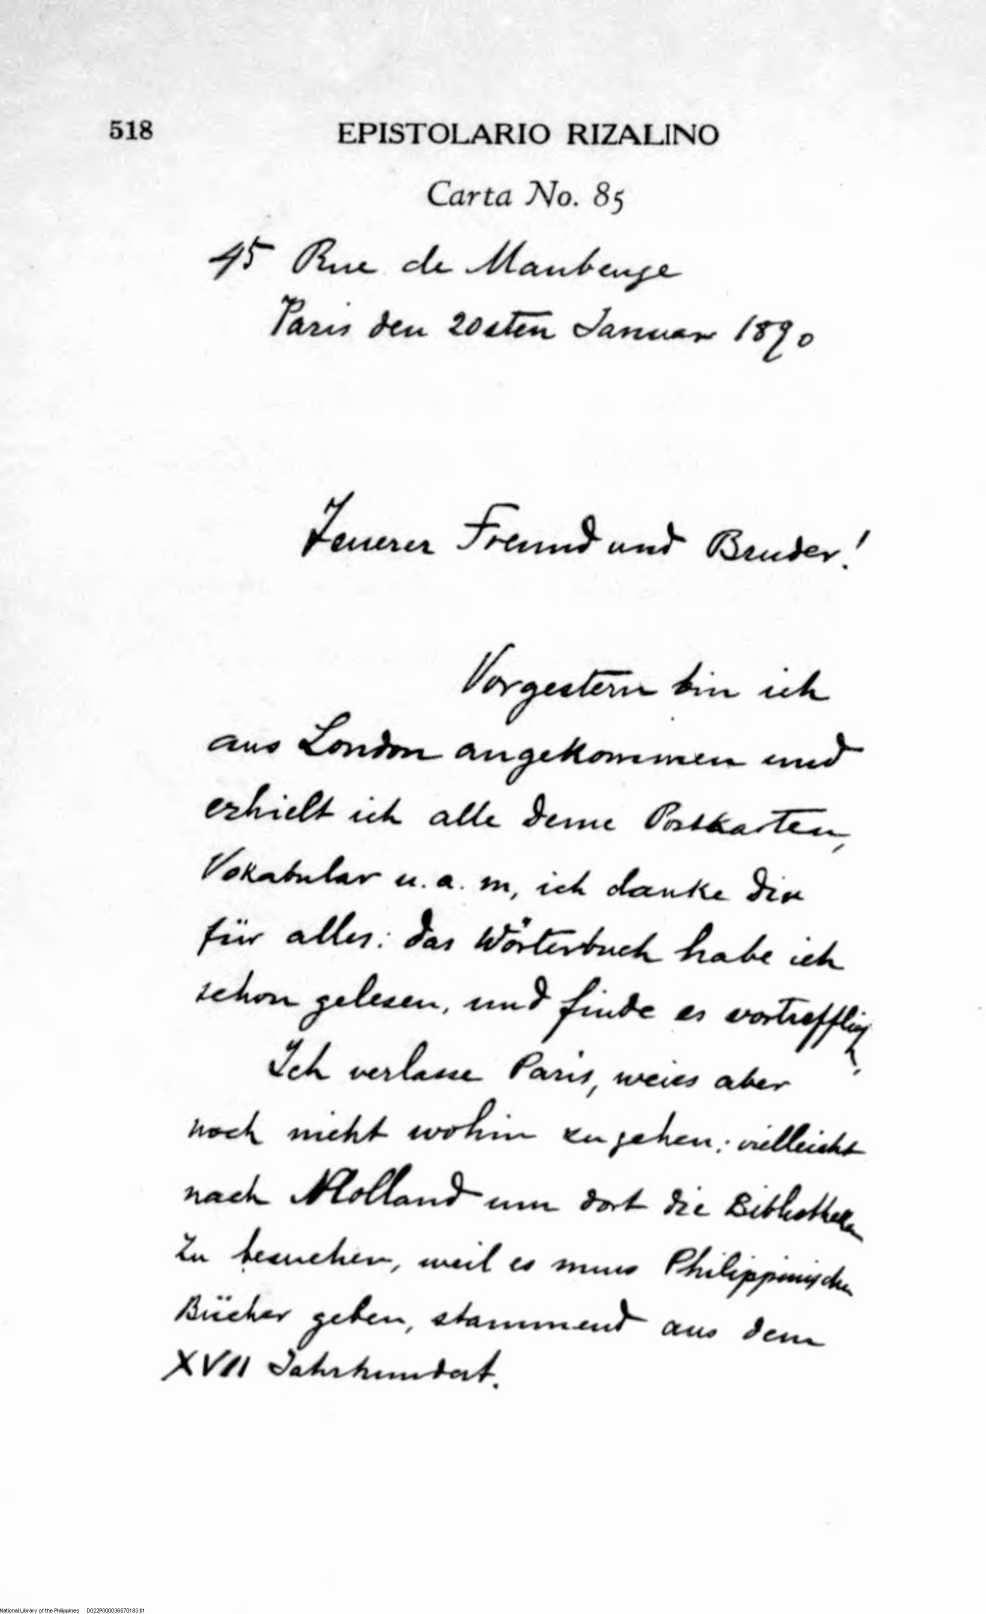 518
EPISTOLARIO RIZALINO
Carta No. 85
45 Rue de Maubeuge
Paris den 20sten Januar 1890
Teuerer Freund und Bruder!
Vorgestern bin ich
aus London angekommen und
erhielt ich alle deine Postkarten,
Vokabular u. a. m, ich danke dir
für alles: das Wörterbuch habe ich
schon gelesen, und finde es vortrefflich,
Ich verlasse Paris, weiss aber
noch nicht wohin zu gehen; vielleicht
nach Holland um dort die Bibliotheken
zu besuchen, weil es muss Philippinischen
Bücher geben, stammend aus dem
XVII Jahrhundert.
National Library of the Philippines